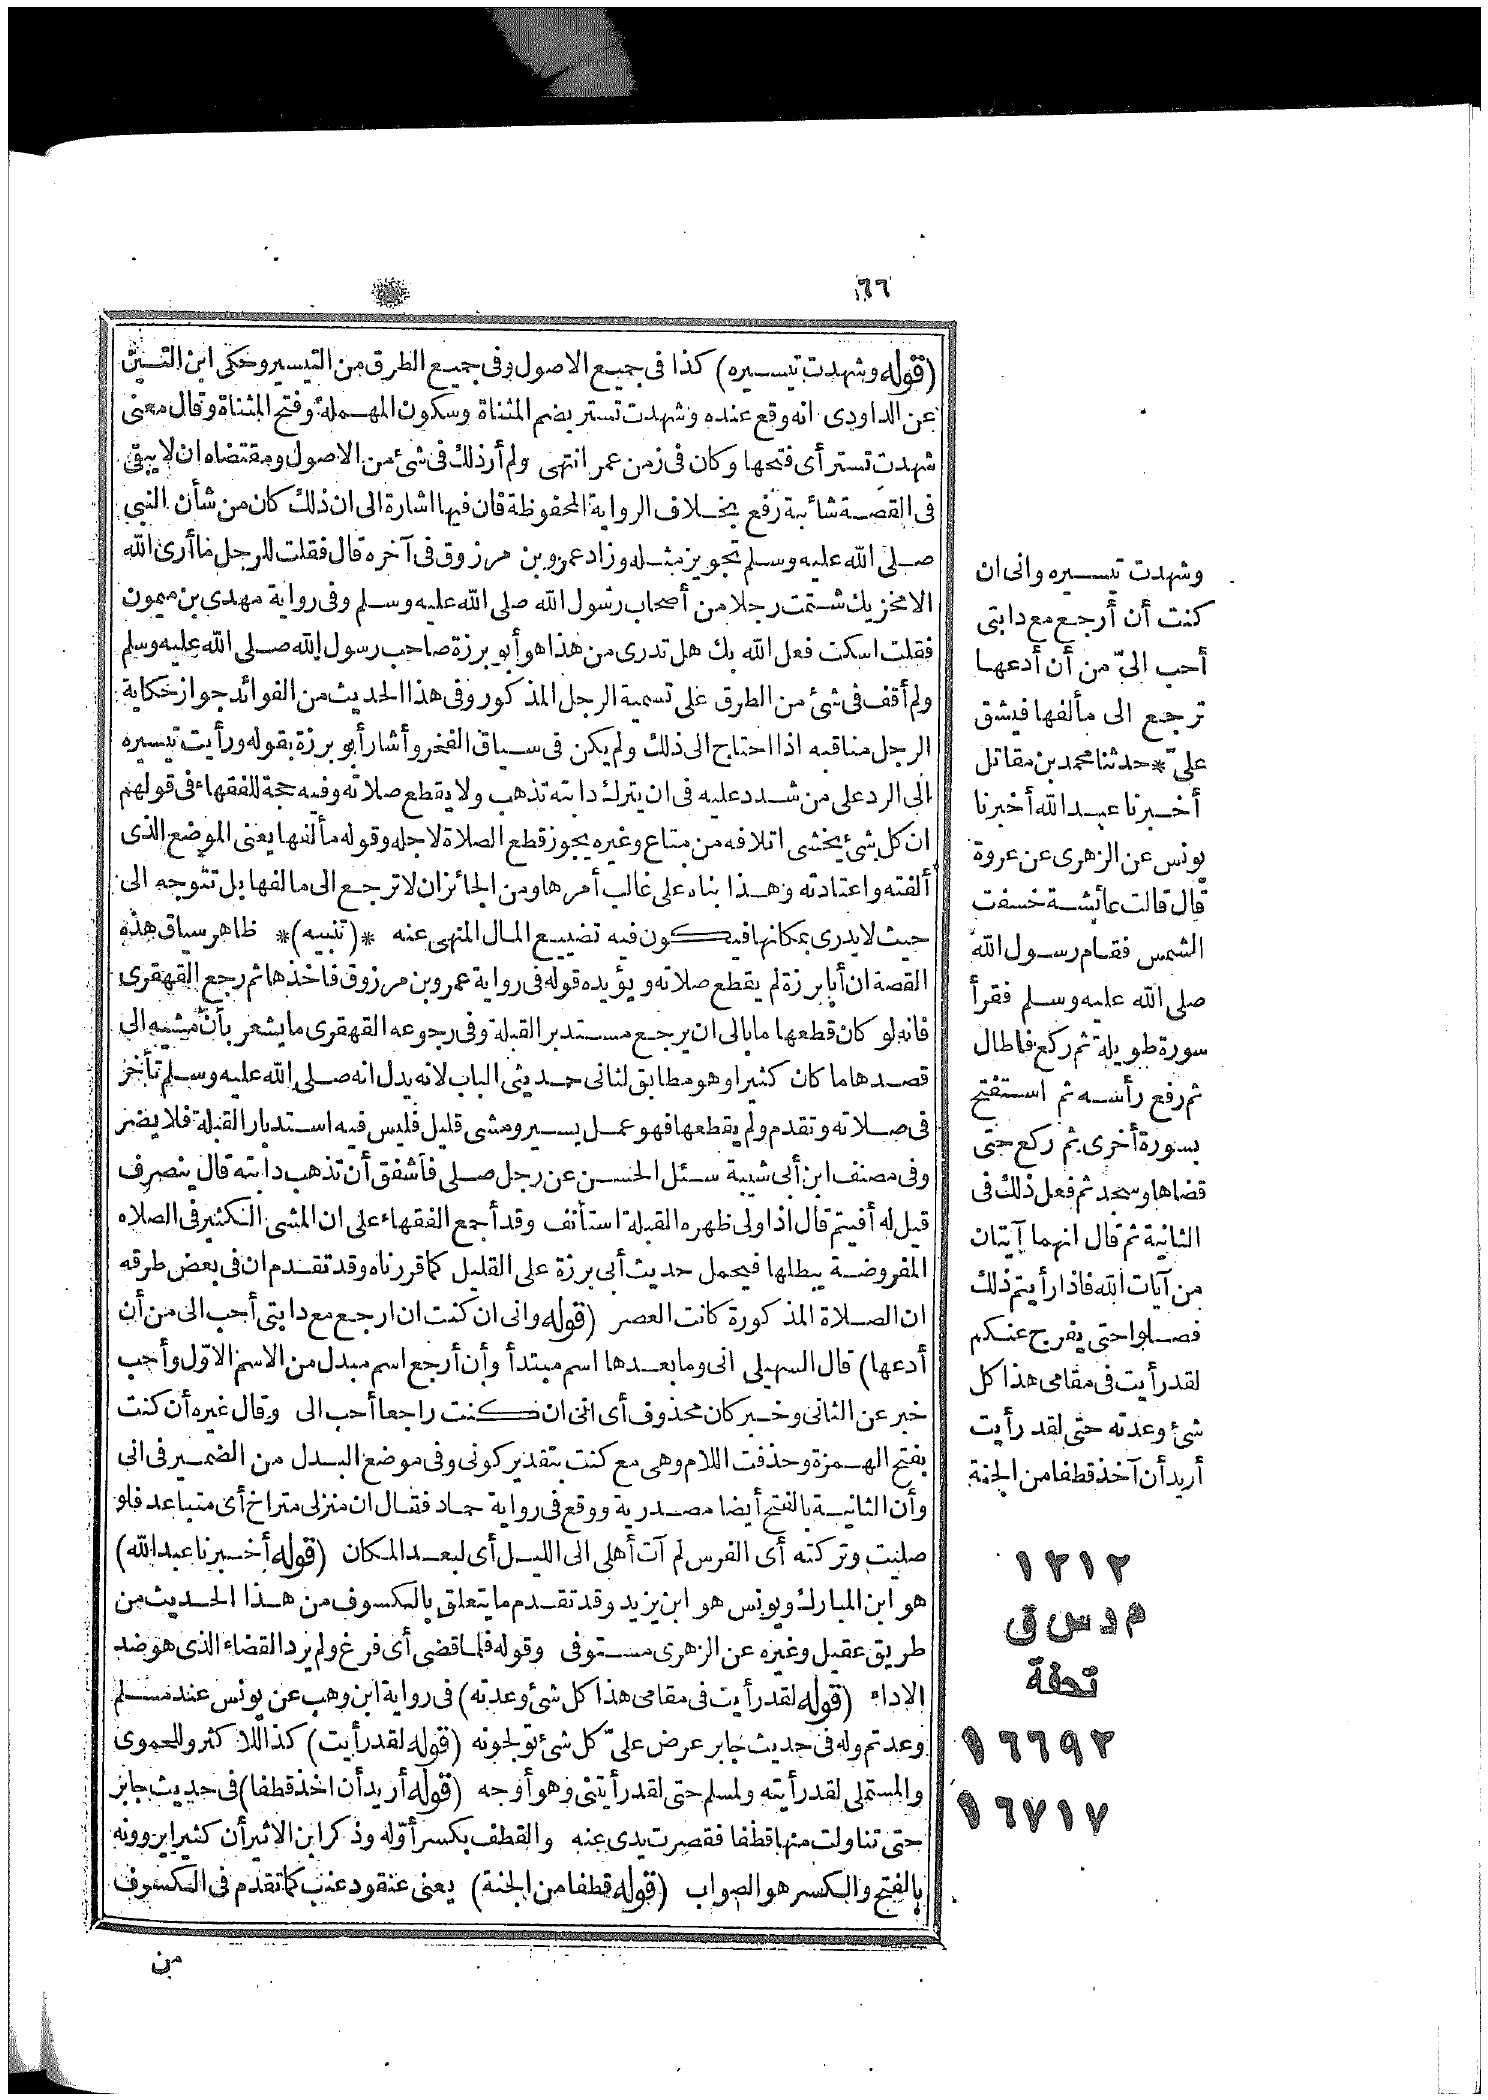 ٦٦
(قوله وشهدت تيسيره) كذا فى جميع الاصول وفى جميع الطرق من التيسير وحكى ابن التين
عن الداودى انه وقع عنده وشهدت تستر بضم المثناة وسكون المهملة وفتح المثناة وقال معنى
شهدت تستر أى فتحها وكان فى زمن عمر انتهى ولم أر ذلك فى شئ من الاصول ومقتضاه ان لا يبقى
فى القصة شائبة رفع بخلاف الرواية المحفوظة فان فيها اشارة الى ان ذلك كان من شأن النبى
صلى الله عليه وسلم تجويز مثله وزاد عمرو بن مرزوق فى آخره قال فقلت للرجل ما أرى الله
الا مخزيك شتمت رجلا من أصحاب رسول الله صلى الله عليه وسلم وفى رواية مهدى بن ميمون
فقلت اسكت فعل الله بك هل تدرى من هذا هو أبو برزة صاحب رسول الله صلى الله عليه وسلم
ولم أقف فى شئ من الطرق على تسمية الرجل المذكور وفى هذا الحديث من الفوائد جواز حكاية
الرجل مناقبه اذا احتاج الى ذلك ولم يكن فى سياق الفخر وأشار أبو برزة بقوله ورأيت تيسيره
الى الرد على من شدد عليه فى ان يترك دابته تذهب ولا يقطع صلاته وفيه حجة للفقهاء فى قولهم
ان كل شئ يخشى اتلافه من متاع وغيره يجوز قطع الصلاة لاجله وقوله مألفها يعنى الموضع الذى
ألفته واعتادته وهذا بناه على غالب أمرها ومن الجائز ان لا ترجع الى مالفها بل تتوجه الى
حيث لا يدرى بمكانها فيكون فيه تضييع المال المنهى عنه *(تنبيه)* ظاهر سياق هذه
القصة ان أبا برزة لم يقطع صلاته ويؤيده قوله فى رواية عمرو بن مرزوق فاخذها ثم رجع القهقرى
فانه لو كان قطعها ما بالى ان يرجع مستدبر القبلة وفى رجوعه القهقرى ما يشعر بأن مشيه الى
قصدها ما كان كثيرا وهو مطابق لثانى حديثى الباب لانه يدل انه صلى الله عليه وسلم تأخر
فى صلاته وتقدم ولم يقطعها فهو عمل يسير ومشى قليل فليس فيه استدبار القبلة فلا يضر
وفى مصنف ابن أبى شيبة سئل الحسن عن رجل صلى فأشفق أن تذهب دابته قال ينصرف
قيل له أفيتم قال اذا ولى ظهره القبلة استأنف وقد أجمع الفقهاء على ان المشى الكثير فى الصلاه
المفروضة يبطلها فيحمل حديث أبى برزة على القليل كما قررناه وقد تقدم ان فى بعض طرقه
ان الصلاة المذكورة كانت العصر (قوله وانى ان كنت ان ارجع مع دابتى أحب الى من أن
أدعها) قال السهيلى انى وما بعدها اسم مبتدأ وأن أرجع اسم مبدل من الاسم الاول وأحب
خبر عن الثانى وخبر كان محذوف أى انى ان كنت راجعا أحب الى وقال غيره أن كنت
بفتح الهمزة وحذفت اللام وهى مع كنت بتقدير كونى وفى موضع البدل من الضمير فى انى
وأن الثانية بالفتح أيضا مصدرية ووقع فى رواية حماد فقال ان منزلى متراخ أى متباعد فلو
صليت وتركته أى الفرس لم آت أهلى الى الليل أى لبعد المكان (قوله أخبرنا عبد الله)
هو ابن المبارك ويونس هو ابن يزيد وقد تقدم ما يتعلق بالكسوف من هذا الحديث من
طريق عقيل وغيره عن الزهرى مستوفى وقوله فلما قضى أى فرغ ولم يرد القضاء الذى هو ضد
الاداء (قوله لقد رأيت فى مقامى هذا كل شئ وعدته) فى رواية ابن وهب عن يونس عند مسلم
وعدتم وله فى حديث جابر عرض علىّ كل شئ تولجونه (قوله لقد رأيت) كذا للاكثر وللحموى
والمستملى لقد رأيته ولمسلم حتى لقد رأيتنى وهو أوجه (قوله أريد أن اخذ قطفا) فى حديث جابر
حتى تناولت منها قطفا فقصرت يدى عنه والقطف بكسر أوله وذكر ابن الاثير أن كثيرا يروونه
بالفتح والكسر هو الصواب (قوله قطفا من الجنة) يعنى عنقود عنب كما تقدم فى الكسوف
من
وشهدت تيسيره وانى ان
كنت أن أرجع مع دابتى
أحب الىّ من أن أدعها
ترجع الى مألفها فيشق
علىّ * حدثنا محمد بن مقاتل
أخبرنا عبد الله أخبرنا
يونس عن الزهرى عن عروة
قال قالت عائشة خسفت
الشمس فقام رسول الله
صلى الله عليه وسلم فقرأ
سورة طويلة ثم ركع فاطال
ثم رفع رأسه ثم استفتح
بسورة أخرى ثم ركع حتى
قضاها وسجد ثم فعل ذلك فى
الثانية ثم قال انهما آيتان
من آيات الله فاذا رأيتم ذلك
فصلوا حتى يفرج عنكم
لقد رأيت فى مقامى هذا كل
شئ وعدته حتى لقد رأيت
أريد أن آخذ قطفا من الجنة
١٢١٢
م د س ق
تحفة
١٦٦٩٢
١٦٧١٧